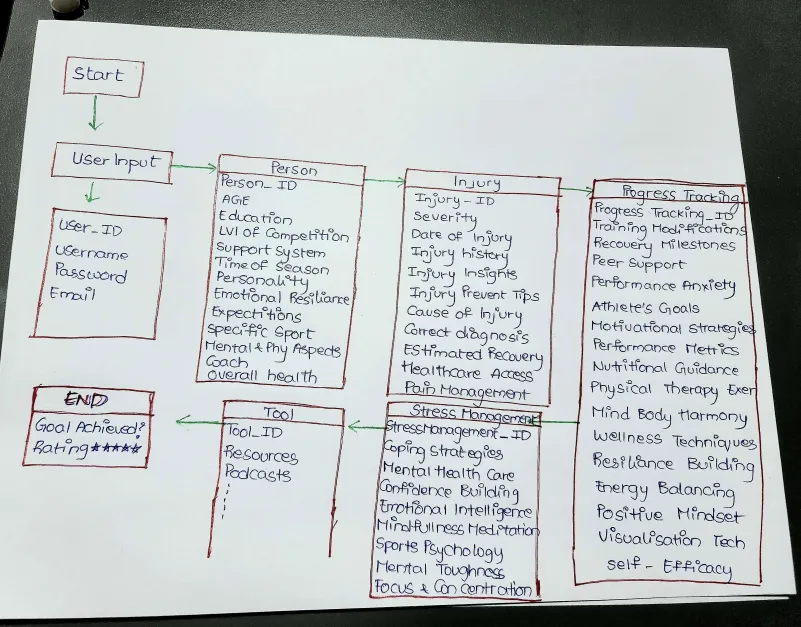 Start
User Input
User_ID
Username
Password
Email
Person
Person_ID
AGE
Education
LVl of Competition
Support System
Time of Season
Personality
Emotional Resiliance
Expectitions
Specific Sport
Mental & Phy Aspects
Coach
Overall health
Injury
Injury_ID
Severity
Date of Injury
Injury history
Injury Insights
Injury Prevent Tips
Cause of Injury
Correct diagnosis
Estimated Recovery
Healthcare Access
Pain Management
Progress Tracking
Progress Tracking_ID
Training Modifications
Recovery Milestones
Peer Support
Performance Anxiety
Athlete's Goals
Motivational Strategies
Performance Metrics
Nutritional Guidance
Physical Therapy Exer
Mind Body Harmony
Wellness Techniques
Resiliance Building
Energy Balancing
Positive Mindset
Visualisation Tech
Self-Efficacy
Stress Management
StressManagement_ID
Coping Strategies
Mental Health Care
Confidence Building
Emotional Intelligence
Mindfullness Meditation
Sports Psychology
Mental Toughness
Focus & Concentration
Tool
Tool_ID
Resources
Podcasts
END
Goal Achieved?
Rating★★★★★